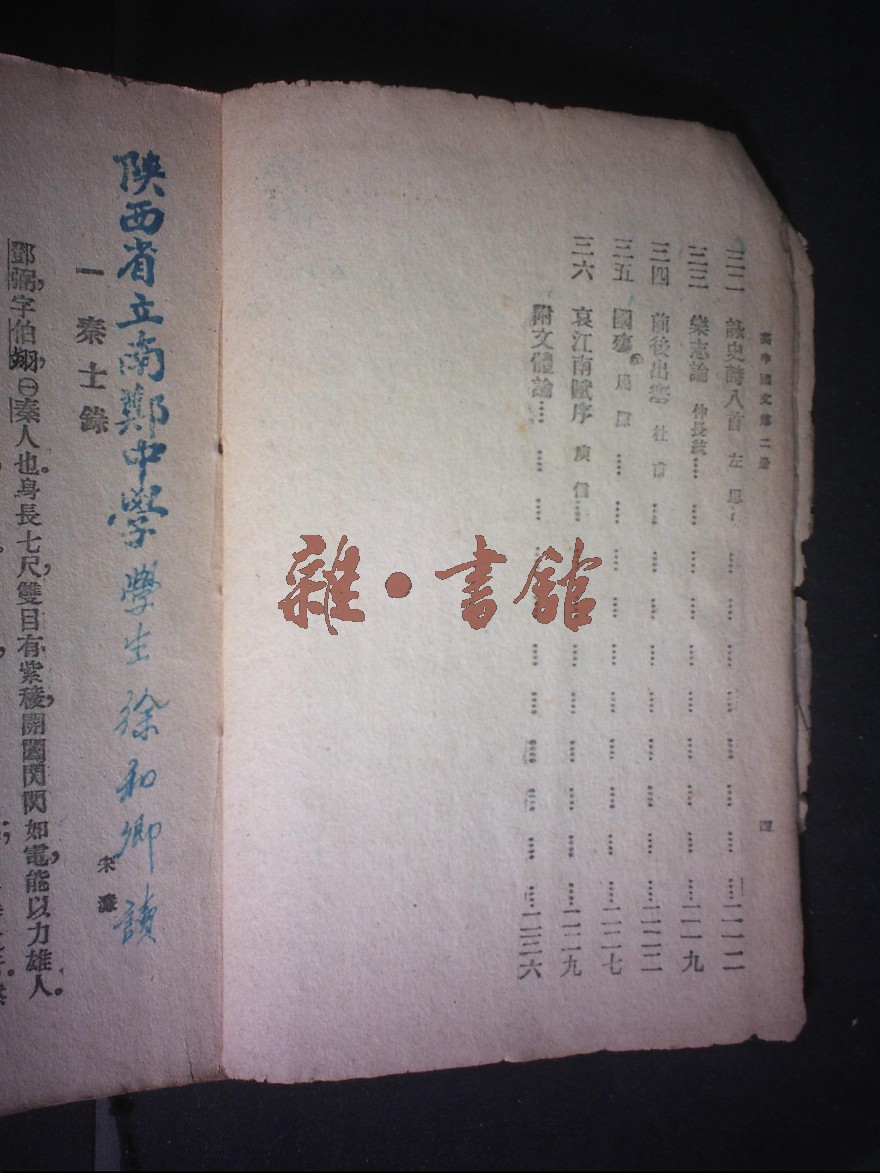 高中國文第二册
三二 詠史詩八首 左思 二一二
三三 樂志論 仲長統 二一九
三四 前後出塞 杜甫 二二二
三五 國殤 屈原 二二七
三六 哀江南賦序 庾信 二二九
附文體論 二三六
四
陝西省立南鄭中學學生徐和卿讀
一 秦士錄
宋濂
鄧弼，字伯翊㊀秦人也。身長七尺，雙目有紫稜，開闔閃閃如電，能以力雄人。
雜·書館